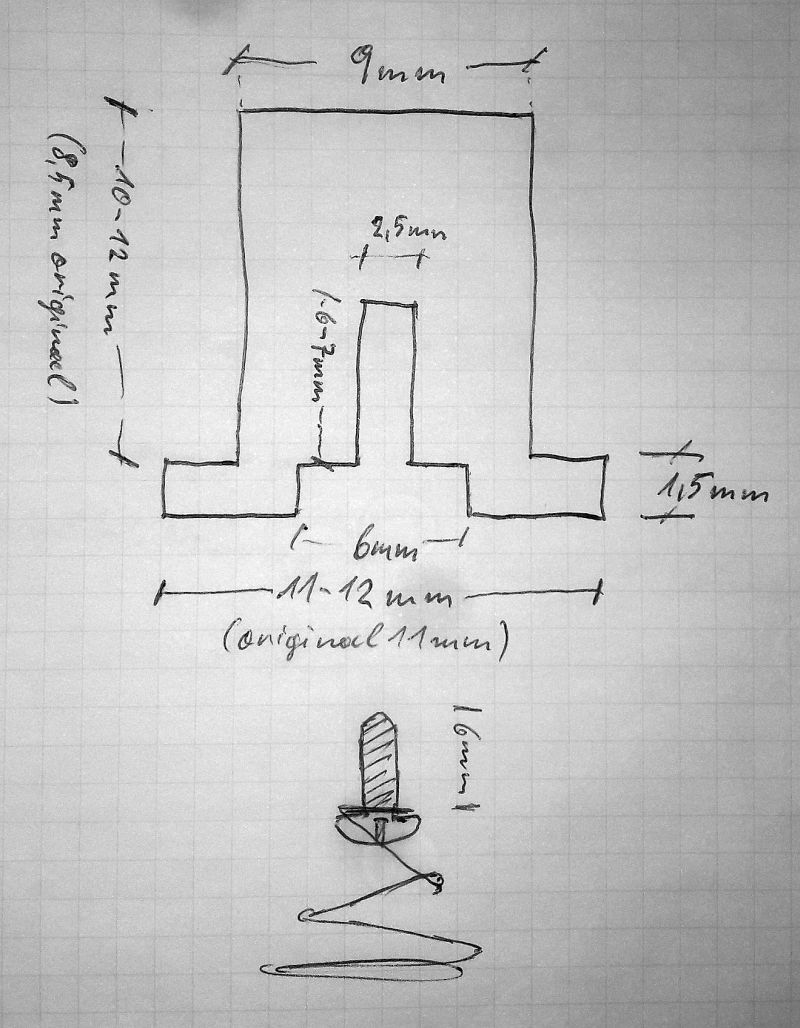 9mm
10-12mm
(8,5mm original)
2,5mm
6-7mm
1,5mm
6mm
11-12mm
(original 11mm)
6mm